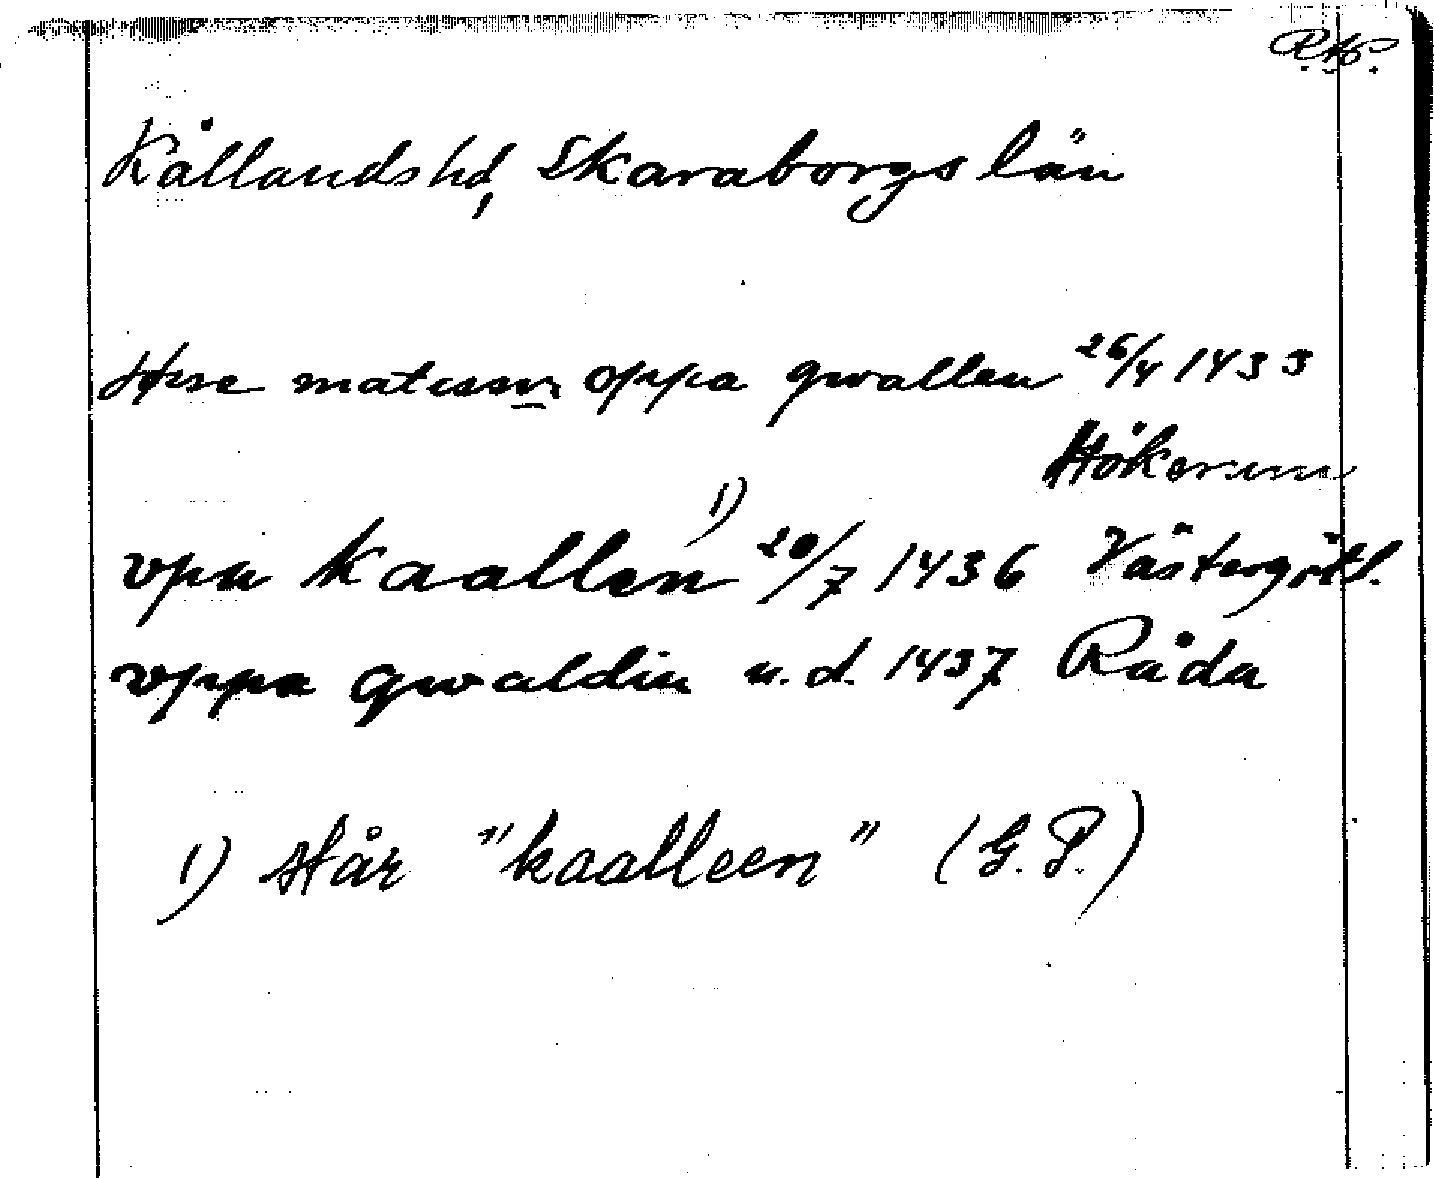 R.A.P.
Kållands hd, Skaraborgs län
matisson oppa gwallen 26/4 1433
Hökerum
vpa kaallen 1) 20/7 1436 Västergötl.
vppa gwaldin u.d. 1437 Råda
1) står "kaalleen" (G.P.)